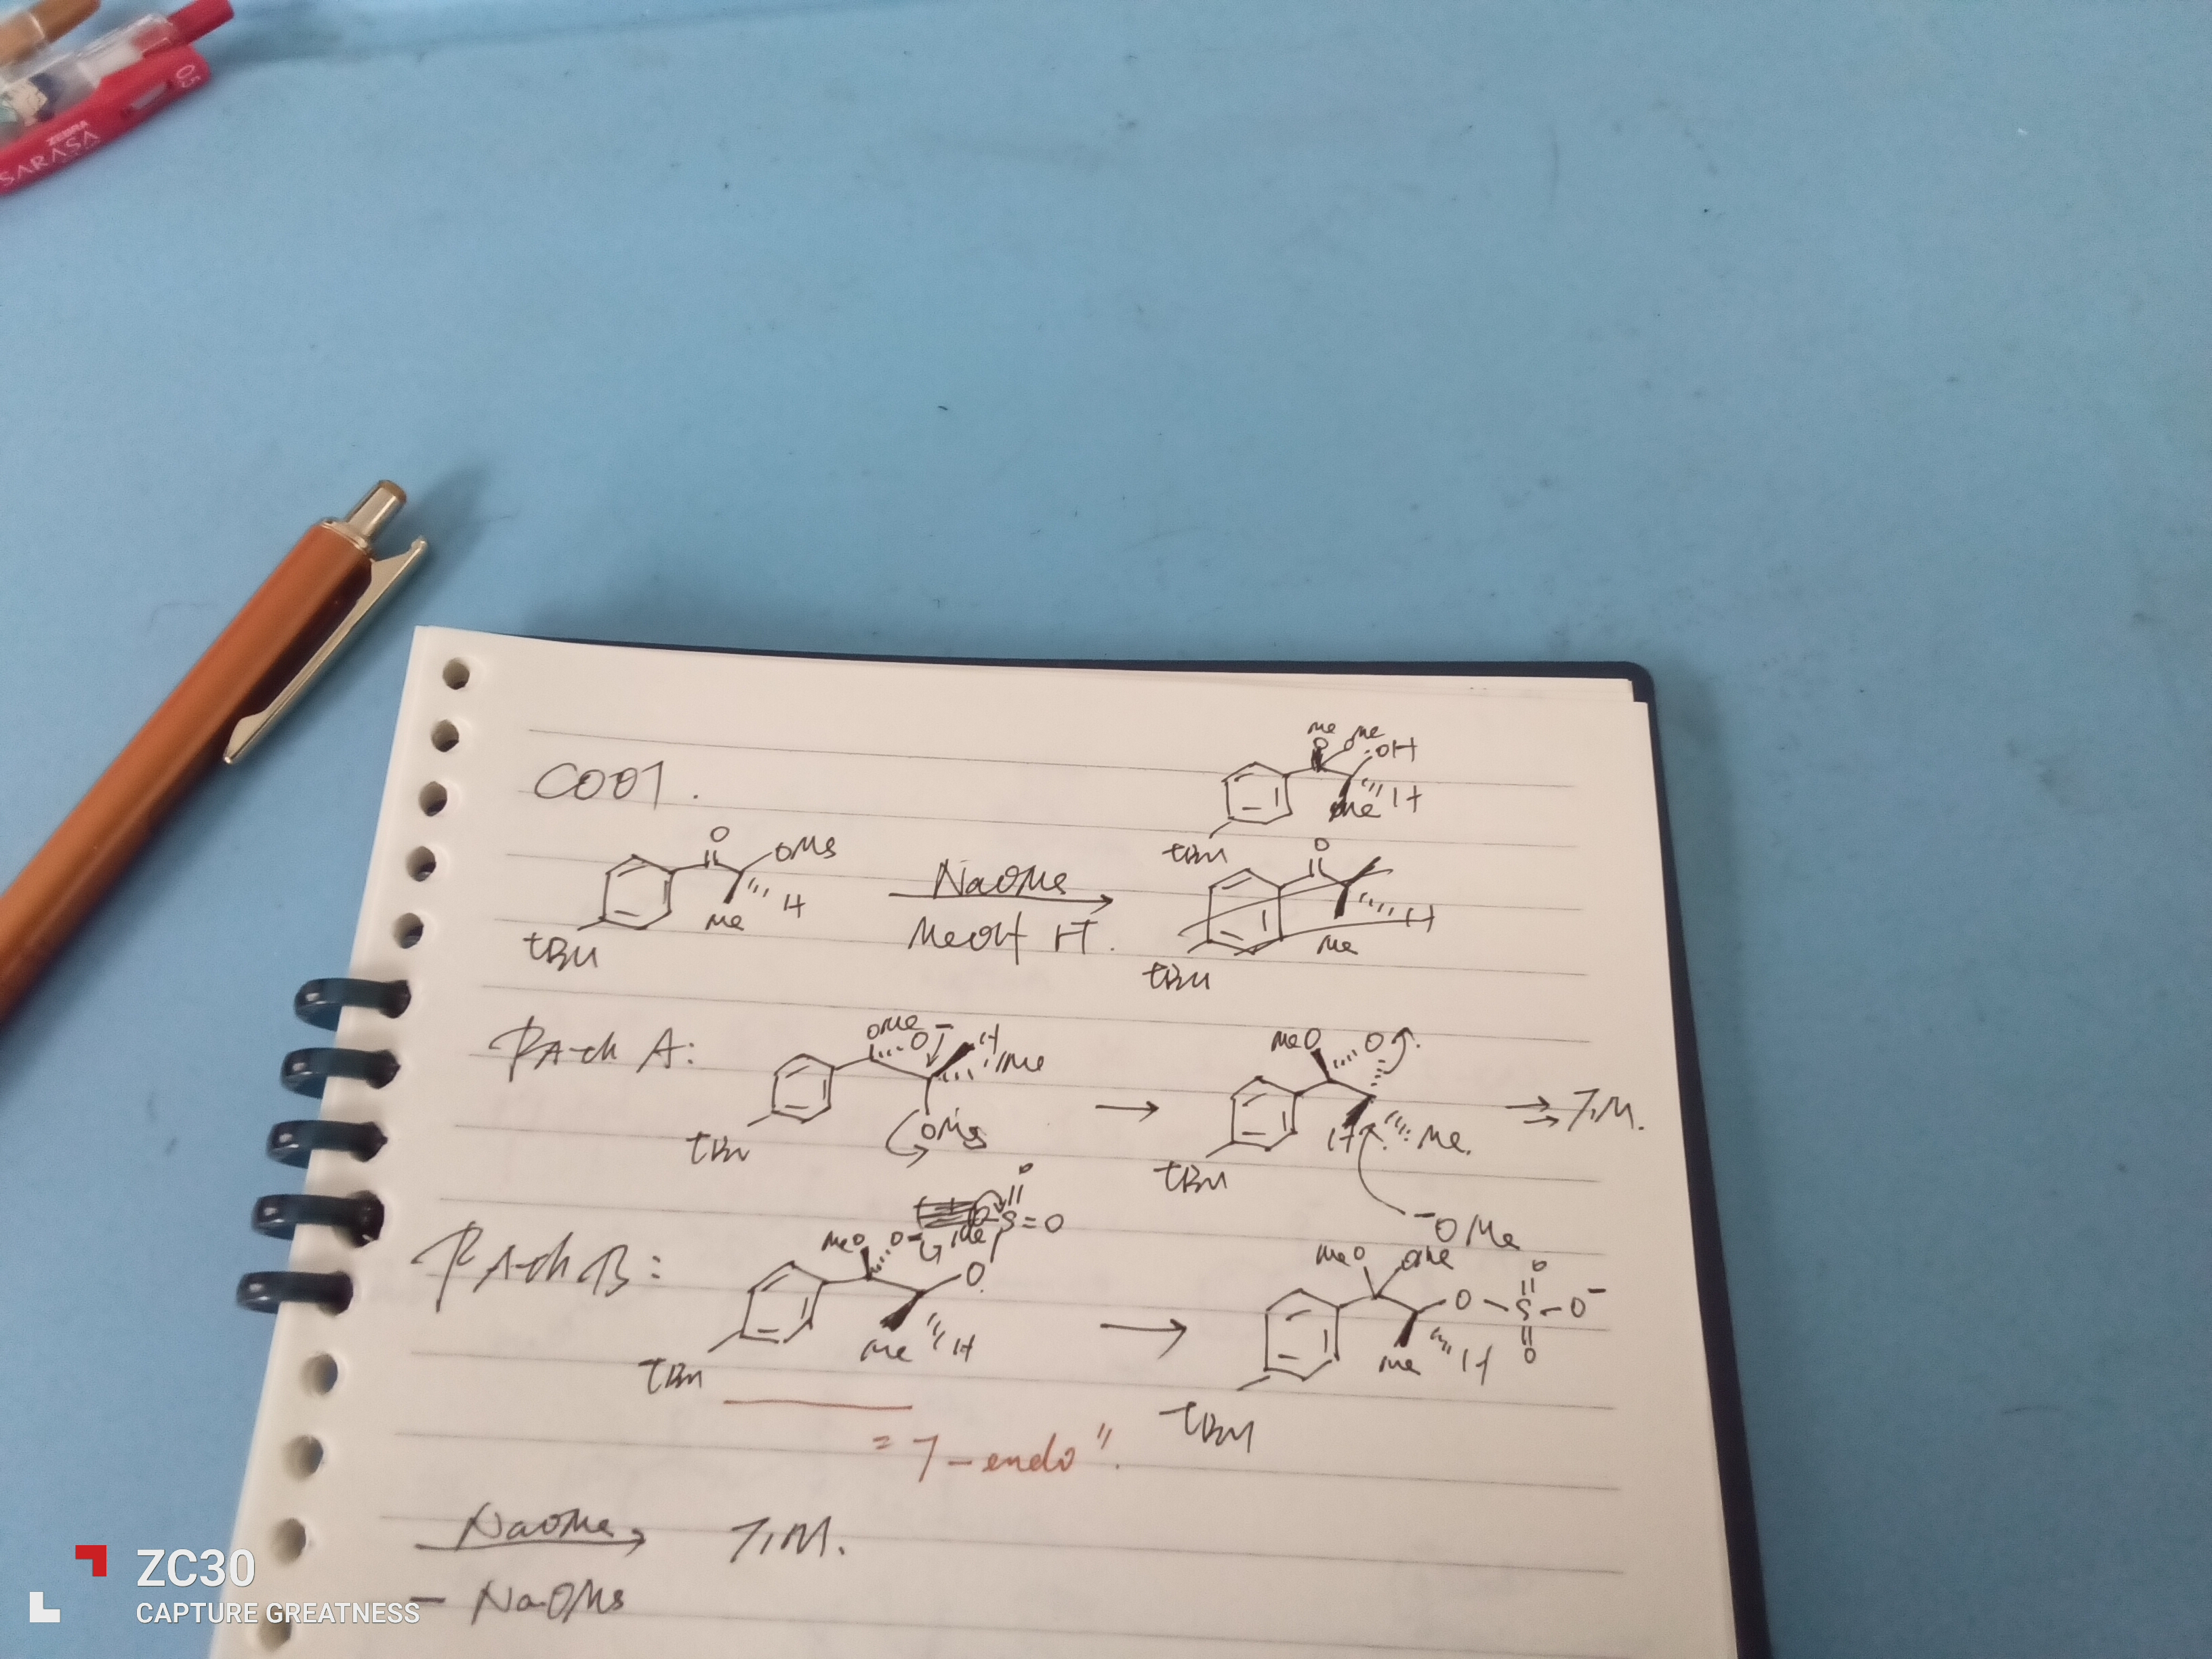 0.5
ZEBRA
SARASA
C001.
Me Me
O O OH
Me H
tBu
O OMs
Me H
tBu
NaOMe
MeOH rt.
O
H
Me
tBu
Path A:
OMe O− H
Me
OMs
tBu
MeO O
H Me.
tBu
T.M.
−OMe
Path B:
O
S=O
MeO O− Me
O
Me H
tBu
MeO OMe O
O − S − O−
O
Me H
tBu
"7-endo".
NaOMe T.M.
− NaOMs
ZC30
CAPTURE GREATNESS